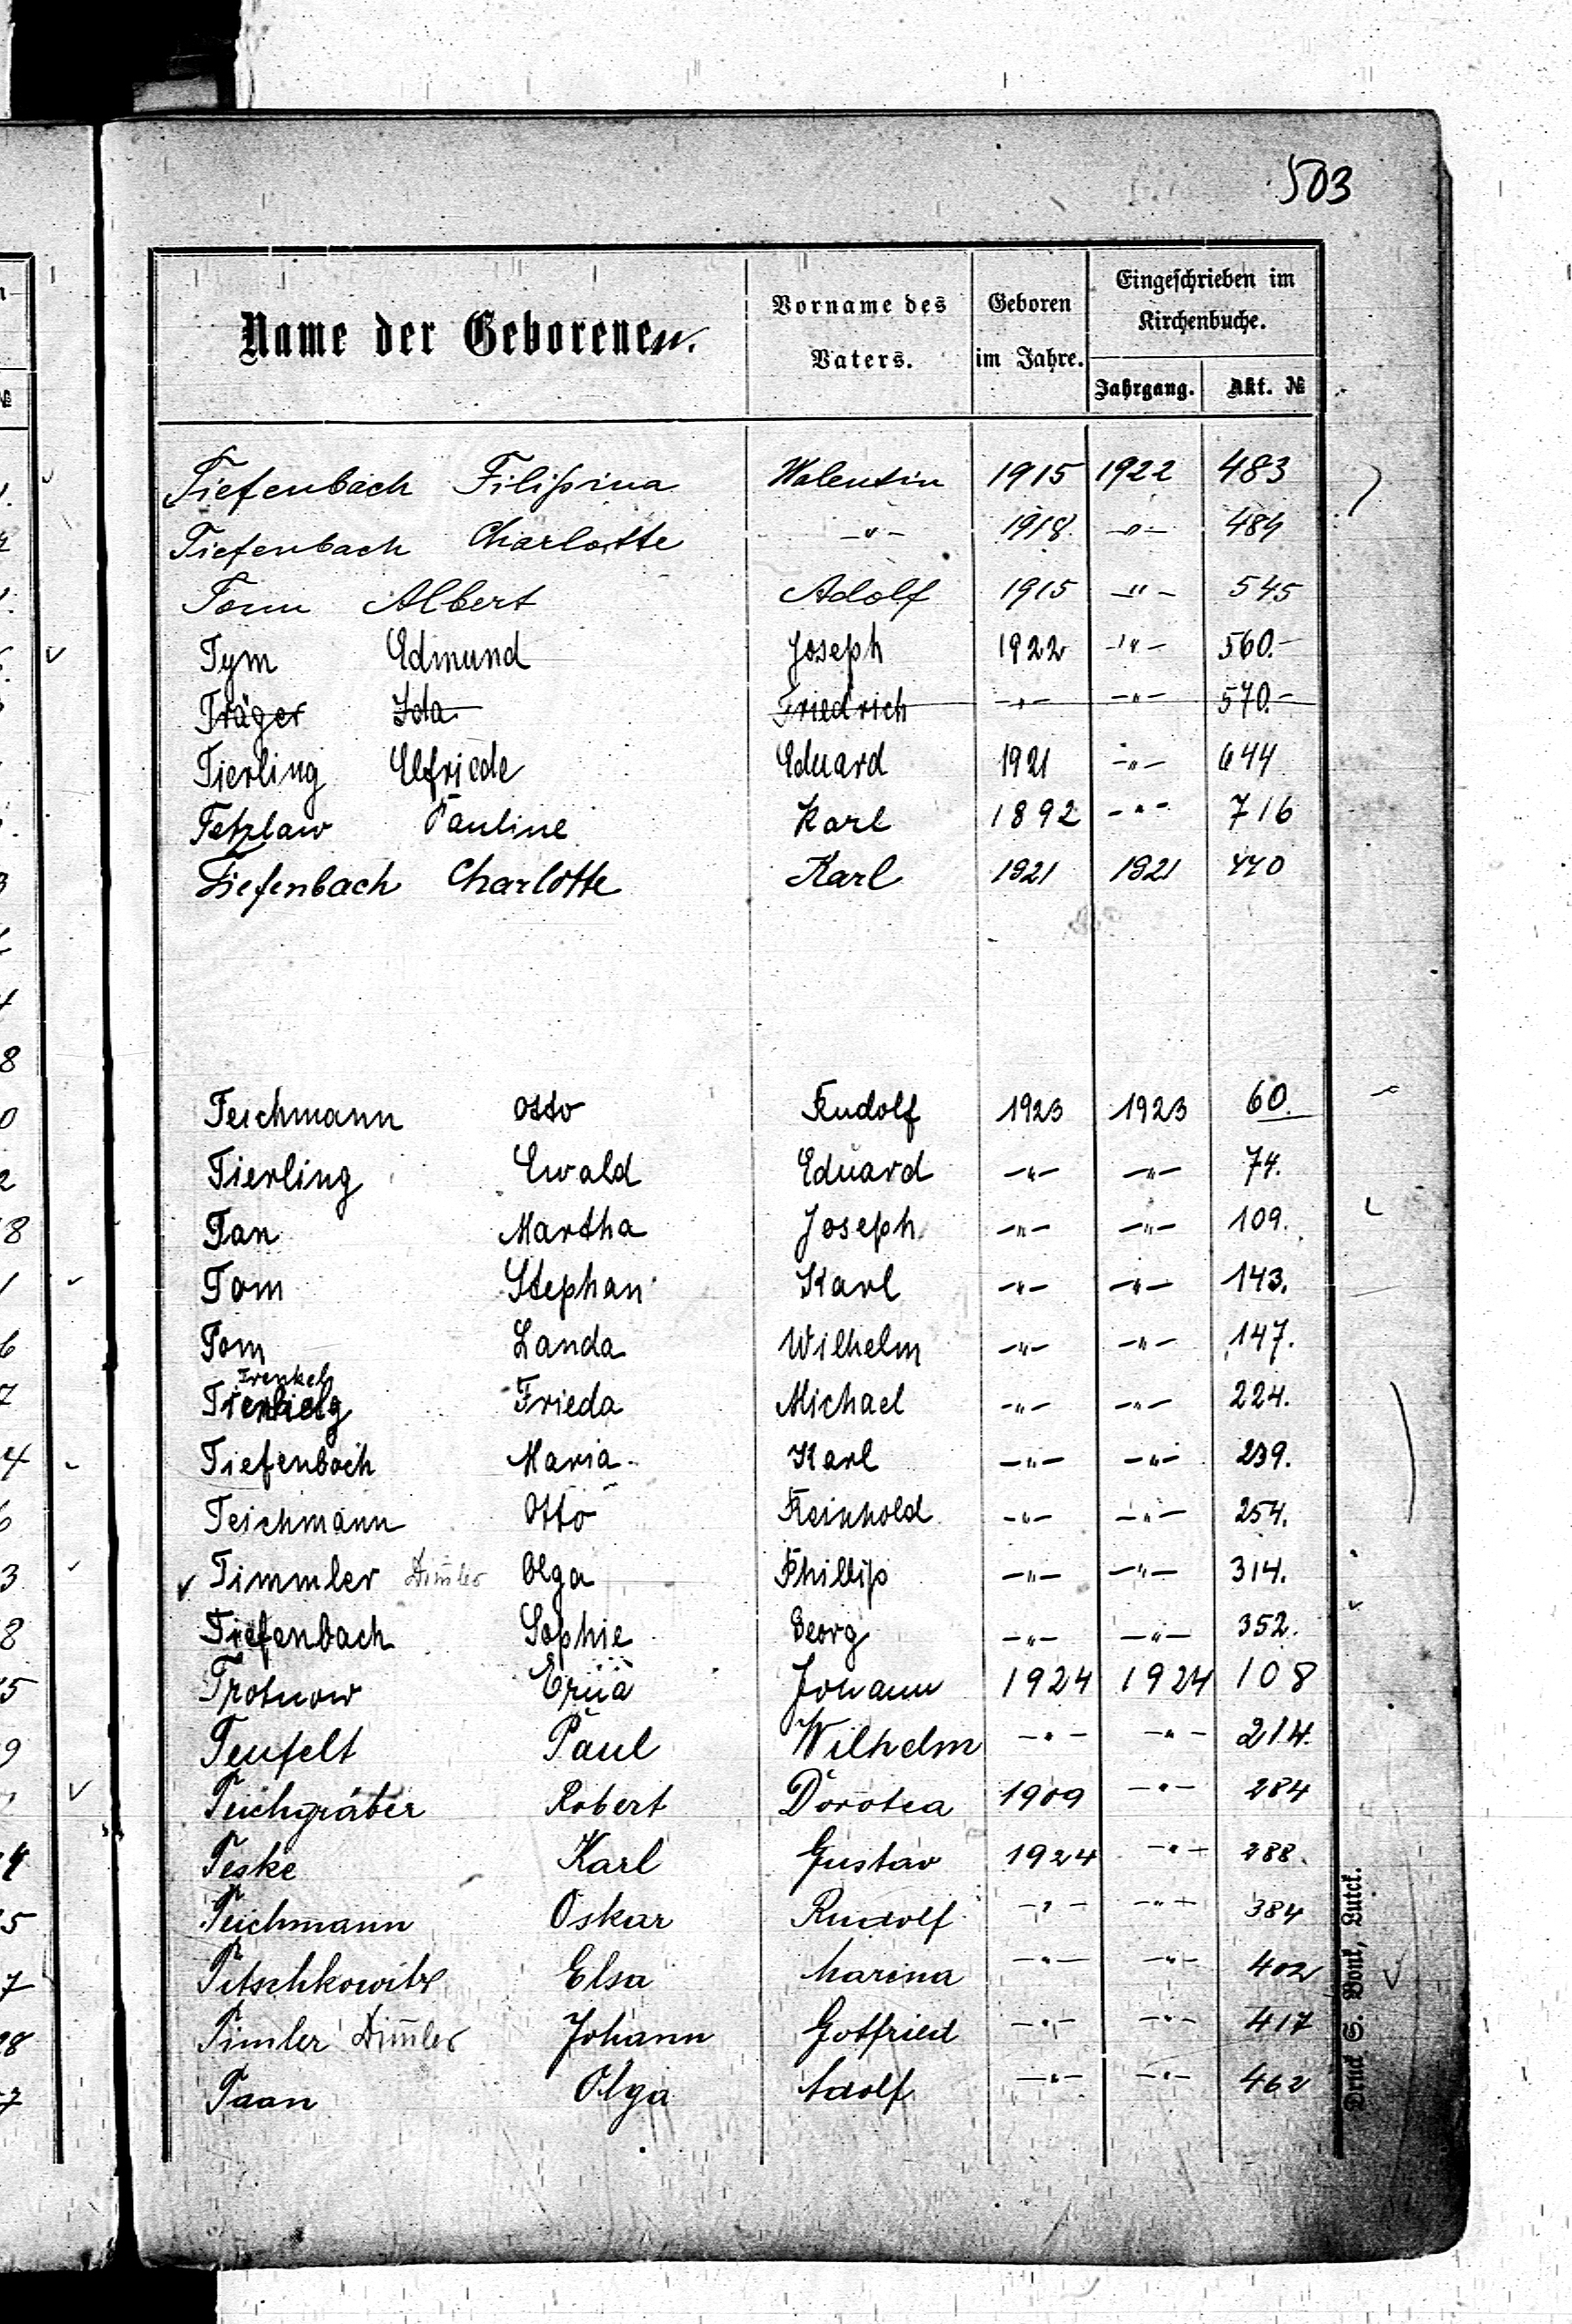 503
Name der Geborenen.
Vorname des Vaters.
Geboren im Jahre.
Eingeschrieben im Kirchenbuche.
Jahrgang. Akt. №
Tiefenbach Filipina Walentin 1915 1922 483
Tiefenbach Charlotte -"- 1918 -"- 484
Tonn Albert Adolf 1915 -"- 545
Tym Edmund Joseph 1922 -"- 560.-
Träger Ida Friedrich -"- -"- 570.-
Tierling Elfriede Eduard 1921 -"- 644
Tetzlaw Pauline Karl 1892 -"- 716
Tiefenbach Charlotte Karl 1921 1921 440
Teichmann Otto Rudolf 1923 1923 60.
Tierling Ewald Eduard -"- -"- 74.
Tan Martha Joseph -"- -"- 109.
Tom Stephan Karl -"- -"- 143.
Tom Landa Wilhelm -"- -"- 147.
Trenkel
Frieda Michael -"- -"- 224.
Tiefenbach Maria Karl -"- -"- 239.
Teichmann Otto Reinhold -"- -"- 254.
Timmler Dim̄ler Olga Phillip -"- -"- 314.
Tiefenbach Sophie Georg -"- -"- 352.
Trotnow Erna Johann 1924 1924 108
Teufelt Paul Wilhelm -"- -"- 214.
Teichgräber Robert Dorotea 1909 -"- 284
Teske Karl Gustav 1924 -"- 288.
Teichmann Oskar Rudolf -"- -"- 384
Titschkowitz Elsa Marina -"- -"- 402
Timler Dim̄ler Johann Gotfried -"- -"- 417
Taan Olga Adolf -"- -"- 462
Druck S. Bonk, Lutck.